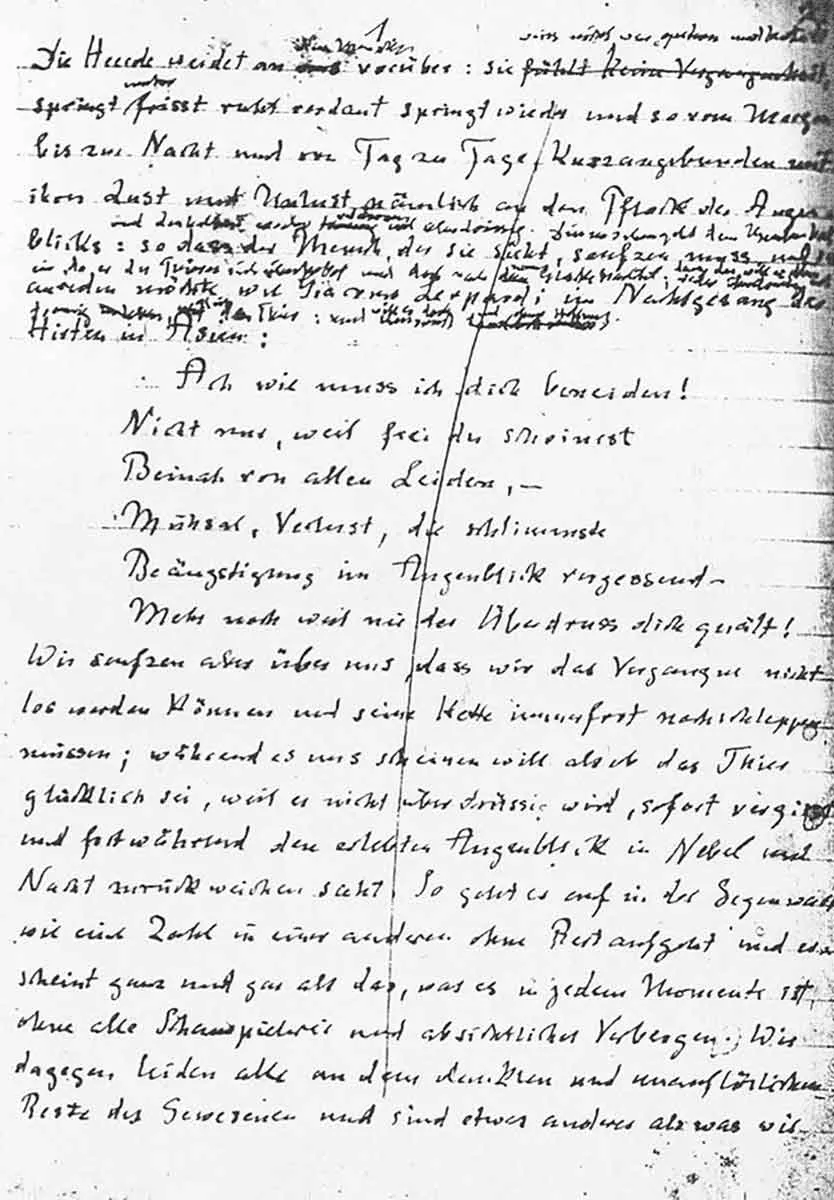 1
dem Menschen
weiss nicht was gestern und heute ist
Die Heerde weidet an uns vorüber: sie fühlt keine Vergangenheit,
weiter
springt frisst ruht verdaut springt wieder und so vom Morgen
bis zur Nacht und von Tag zu Tage, kurz angebunden mit
ihrer Lust und Unlust, nämlich an den Pflock des Augen
blicks: so dass der Mensch, der sie sieht, seufzen muss, und sie
anreden möchte, wie Giacomo Leopardi im Nachtgesang des
Hirten in Asien:
Ach wie muss ich dich beneiden!
Nicht nur, weil frei du scheinest
Beinah von allen Leiden, —
Mühsal, Verlust, die schlimmste
Beängstigung im Augenblick vergessend —
Mehr noch weil nie der Überdruss dich quält!
Wir seufzen aber über uns, dass wir das Vergangne nicht
los werden können und seine Kette immerfort nachschleppen
müssen; während es uns scheinen will als ob das Thier
glücklich sei, weil es nicht überdrüssig wird, sofort vergisst
und fortwährend den erlebten Augenblick in Nebel und
Nacht zurückweichen sieht. So geht es auf in der Gegenwart
wie eine Zahl in einer anderen ohne Rest aufgeht und er
scheint ganz und gar als das, was es in jedem Momente ist,
ohne alle Schauspielerei und absichtliches Verbergen. Wir
dagegen leiden alle an dem dunklen und unauflöslichen
Reste des Gewesenen und sind etwas anderes als was wir